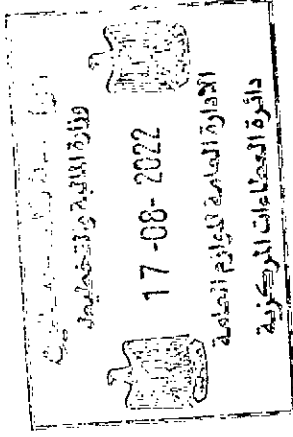 وزارة المالية والتخطيط
17-08-2022
الإدارة العامة للوازم العامة
دائرة العطاءات المركزية